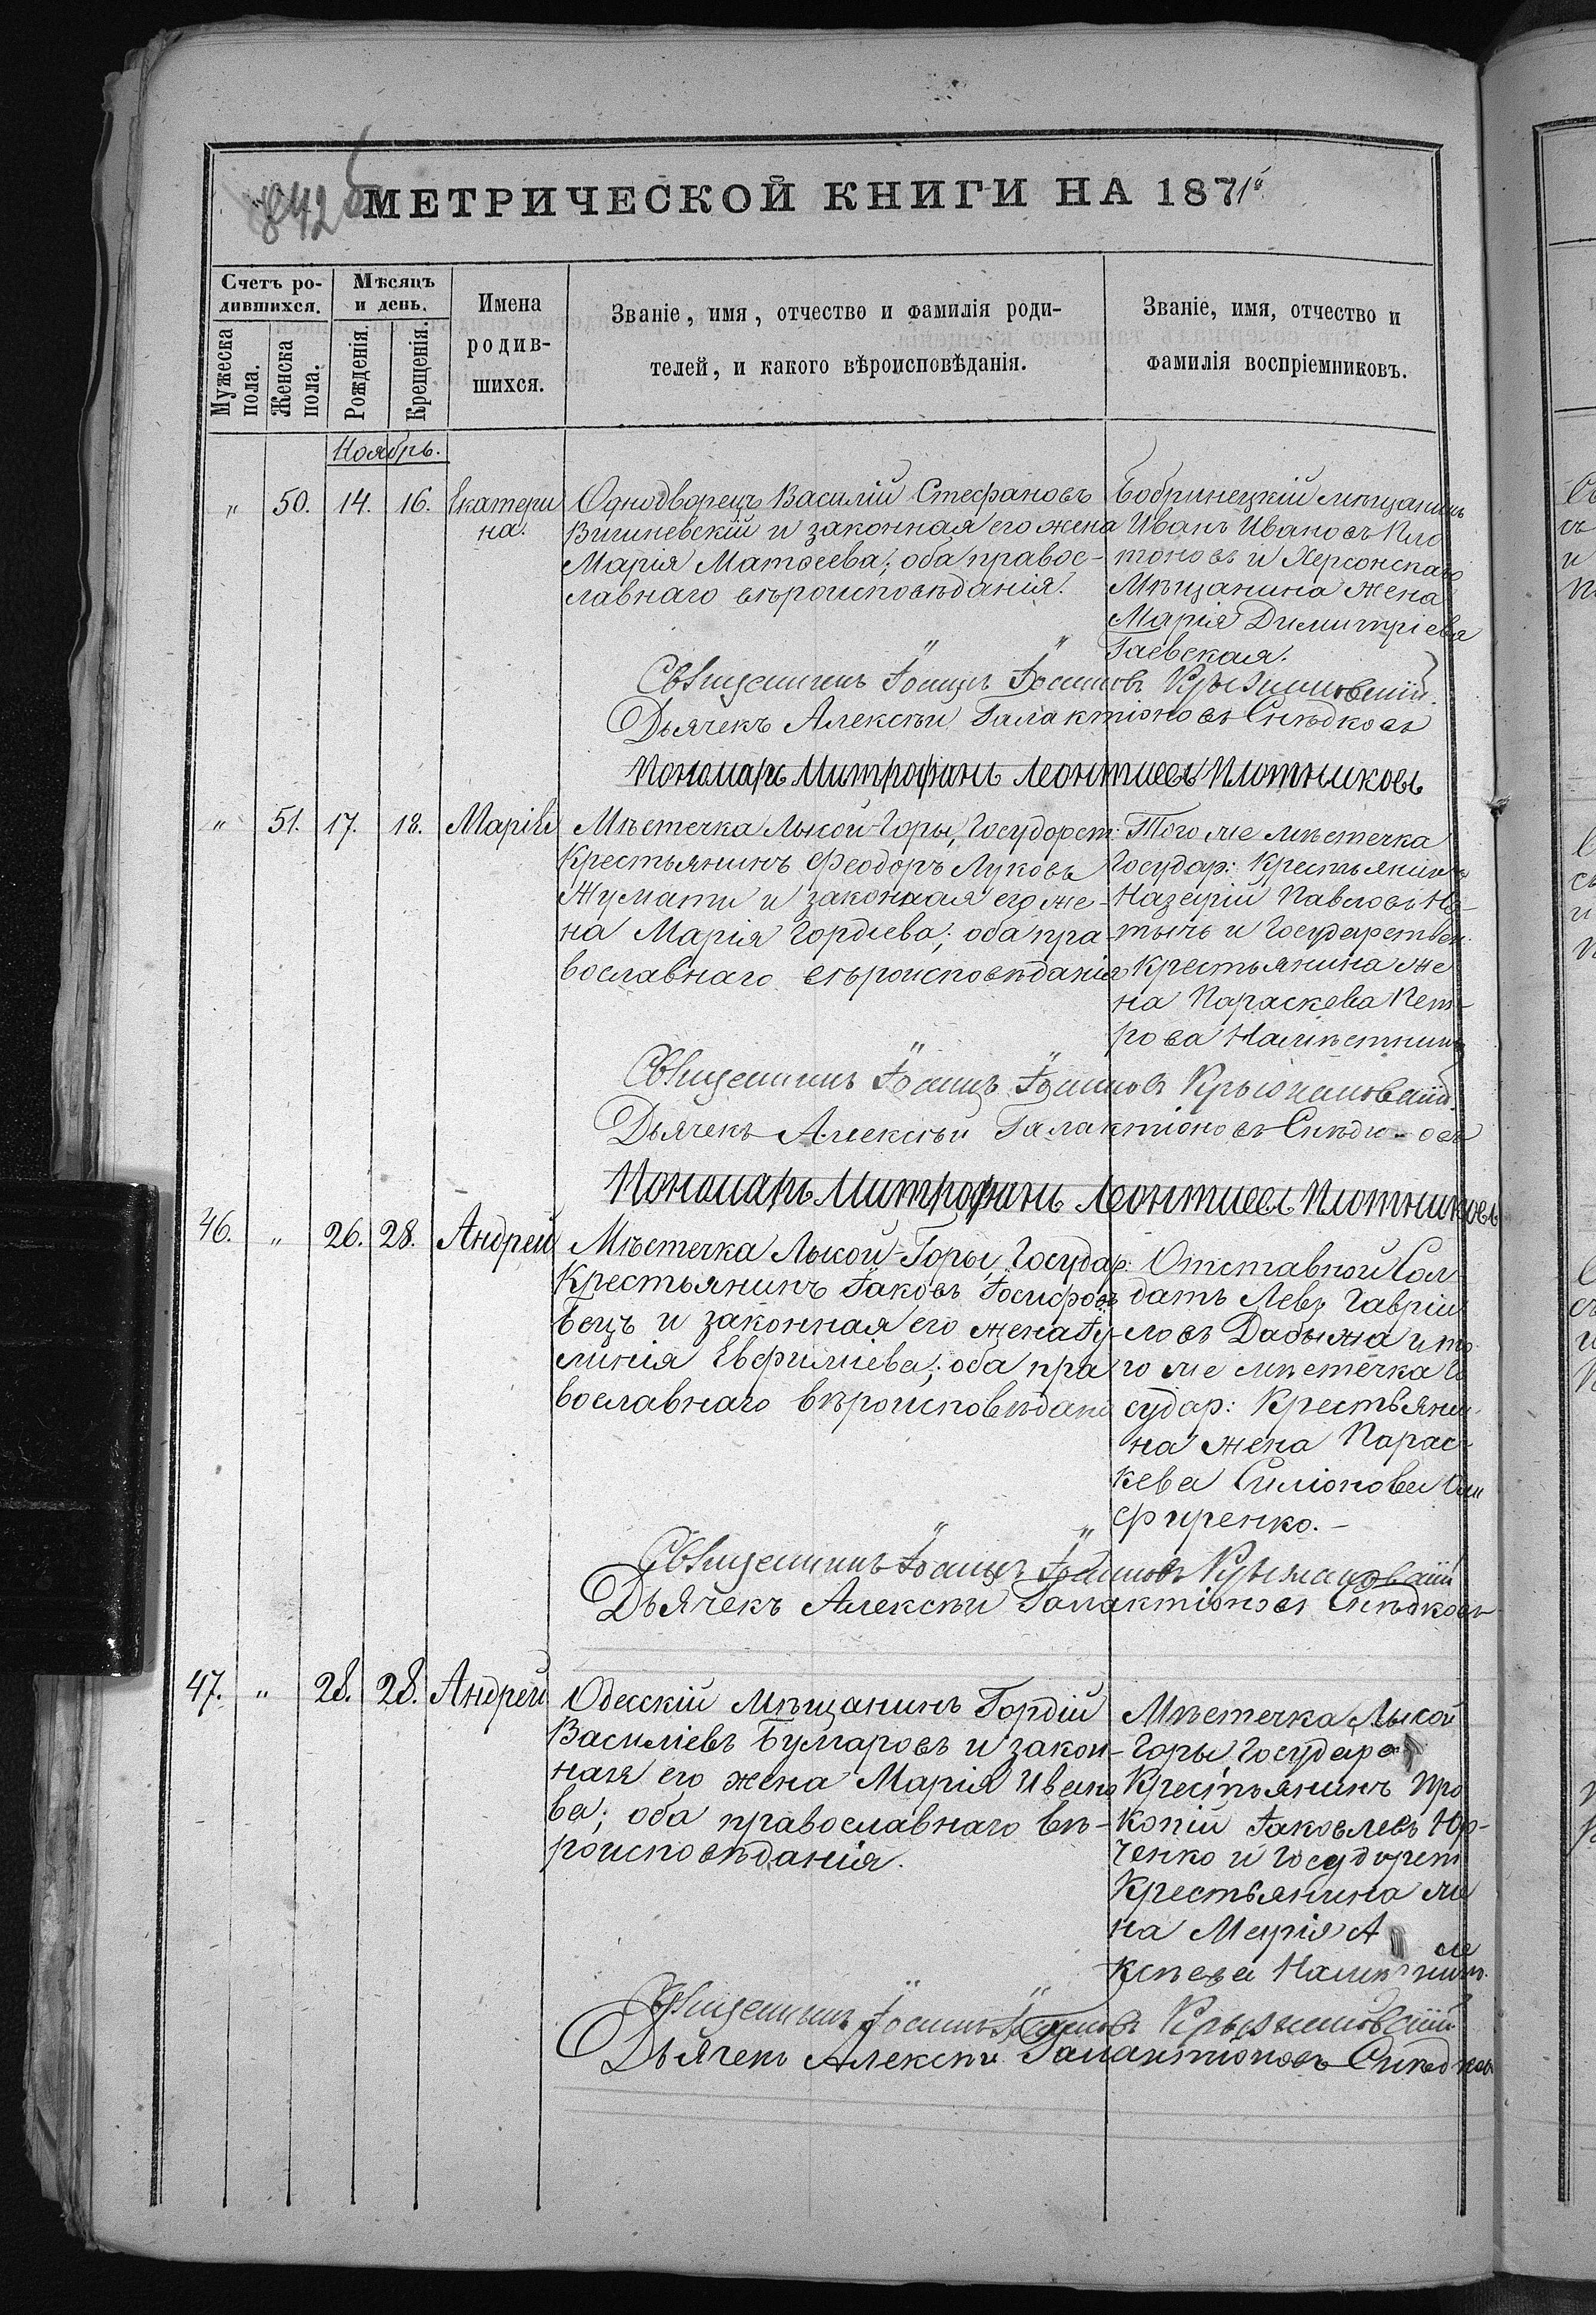 842
МЕТРИЧЕСКОЙ КНИГИ НА 1871
Счетъ ро-
дившихся.
Мужеска
пола.
Женска
пола.
Мѣсяцъ
и день.
Рожденія.
Крещенія.
Имена
родив-
шихся.
Званіе, имя, отчество и фамилія роди-
телей, и какого вѣроисповѣданія.
Званіе, имя, отчество и
фамилія воспріемниковъ.
Ноябрь.
" 50. 14. 16. Екатери
на.
Однодворецъ Василій Стефановъ
Вишневскій и законная его жена
Марія Матѳеева; оба правос-
лавнаго вѣроисповѣданія.
Бобринецкій мѣщанинъ
Иванъ Ивановъ Пла
тоновъ и Херсонскаго
Мѣщанина жена
Марія Димитріева
Гаевская.
Священникъ Іоаннъ Іоанновъ Крыжановскій.
Дьячекъ Алексѣй Галактіоновъ Снѣдковъ
Пономарь Митрофанъ Леонтиевъ Плотниковъ
" 51. 17. 18. Марія
Мѣстечка Лысой-Горы, Государст:
Крестьянинъ Феодоръ Луковъ
Жумати и законная его же-
на Марія Гордіева; оба пра-
вославнаго вѣроисповѣданія
Того же мѣстечка
Государ: Крестьянинъ
Назарій Павловъ
тычъ и Государствен.
Крестьянина же
на Параскева Пет-
рова
Священникъ Іоаннъ Іоанновъ Крыжановскій.
Дьячекъ Алексѣй Галактіоновъ Снѣдковъ
Пономарь Митрофанъ Леонтиевъ Плотниковъ
46. " 26. 28. Андрей
Мѣстечка Лысой-Горы, Государ:
Крестьянинъ Іаковъ Іосифовъ
бецъ и законная его жена Іу-
лиянія Евфиміева; оба пра
вославнаго вѣроисповѣдані
Отставной Сол-
датъ Левъ Гаврии
ловъ Дабижа и то
го же мѣстечка Го
судар: Крестьяни-
на жена Парас-
кева Симонова
фиренко.-
Священникъ Іоаннъ Іоанновъ Крыжановскій
Дьячекъ Алексѣй Галактіоновъ Снѣдковъ
47. " 28. 28. Андрей
Одесскій Мѣщанинъ Гордій
Василіевъ Булгаровъ и закон-
ная его жена Марія Ивано
ва; оба православнаго вѣ-
роисповѣданія.
Мѣстечка Лысой
Горы, Государс
Крестьянинъ Про
копій Іаковлевъ Юр-
ченко и Государст
Крестьянина же
на Марія А
ле
ксѣева
Священникъ Іоаннъ Іоанновъ Крыжановскій
Дьячекъ Алексѣй Галактіоновъ Снѣдковъ